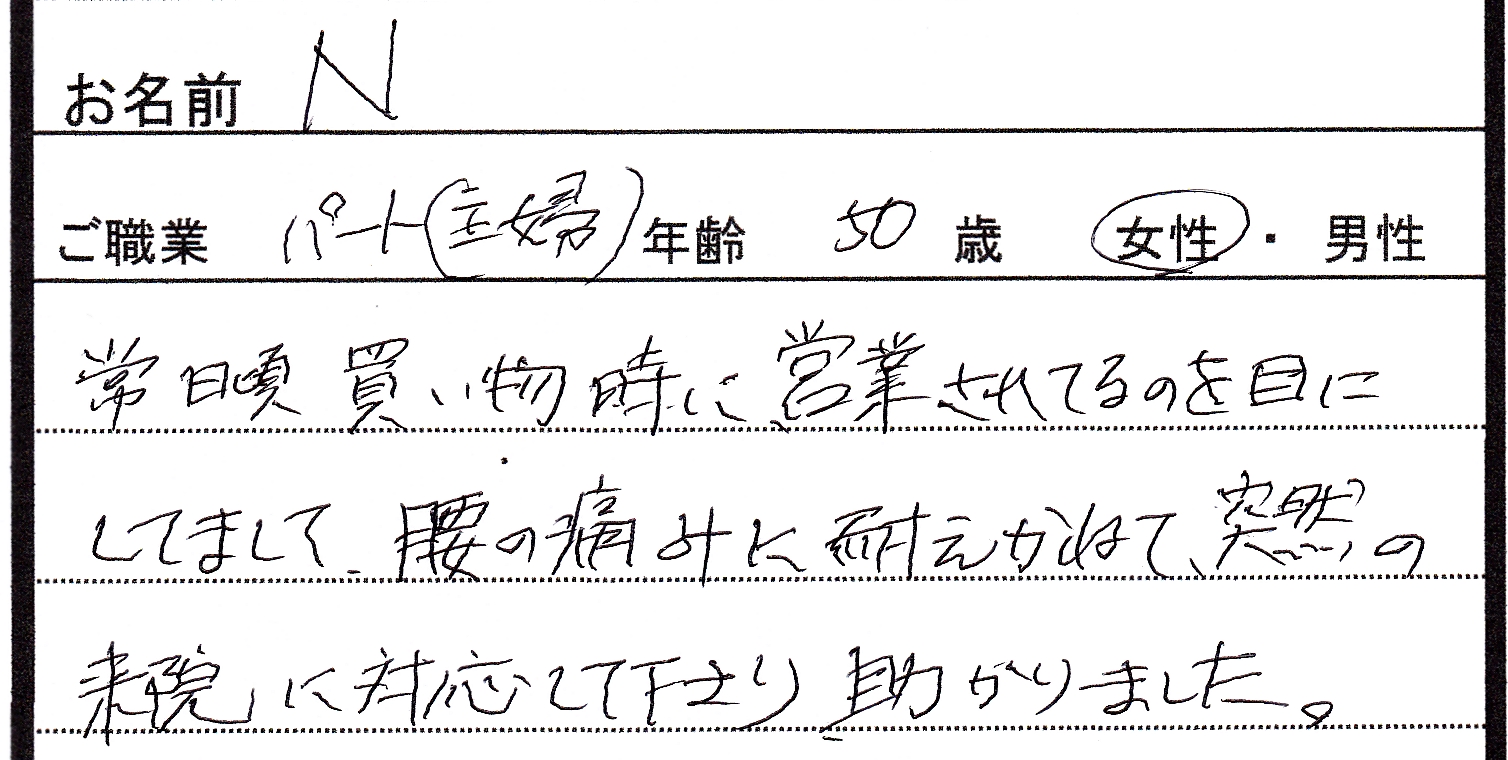 お名前 N
ご職業 パート(主婦) 年齢 50 歳 女性・男性
常日頃買い物時に営業されてるのを目に
してまして、腰の痛みに耐えかねて、突然の
来院に対応して下さり助かりました。